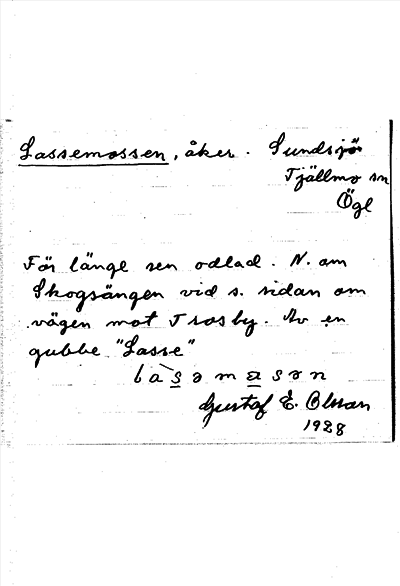 Lassemossen, åker. Sundsjö
Tjällmo sn
Ögl
För länge sen odlad. N. om
Skogsängen vid s. sidan om
vägen mot Trosby. Av en
gubbe "Lasse"
làsəmasən
Gustaf E. Olsson
1928